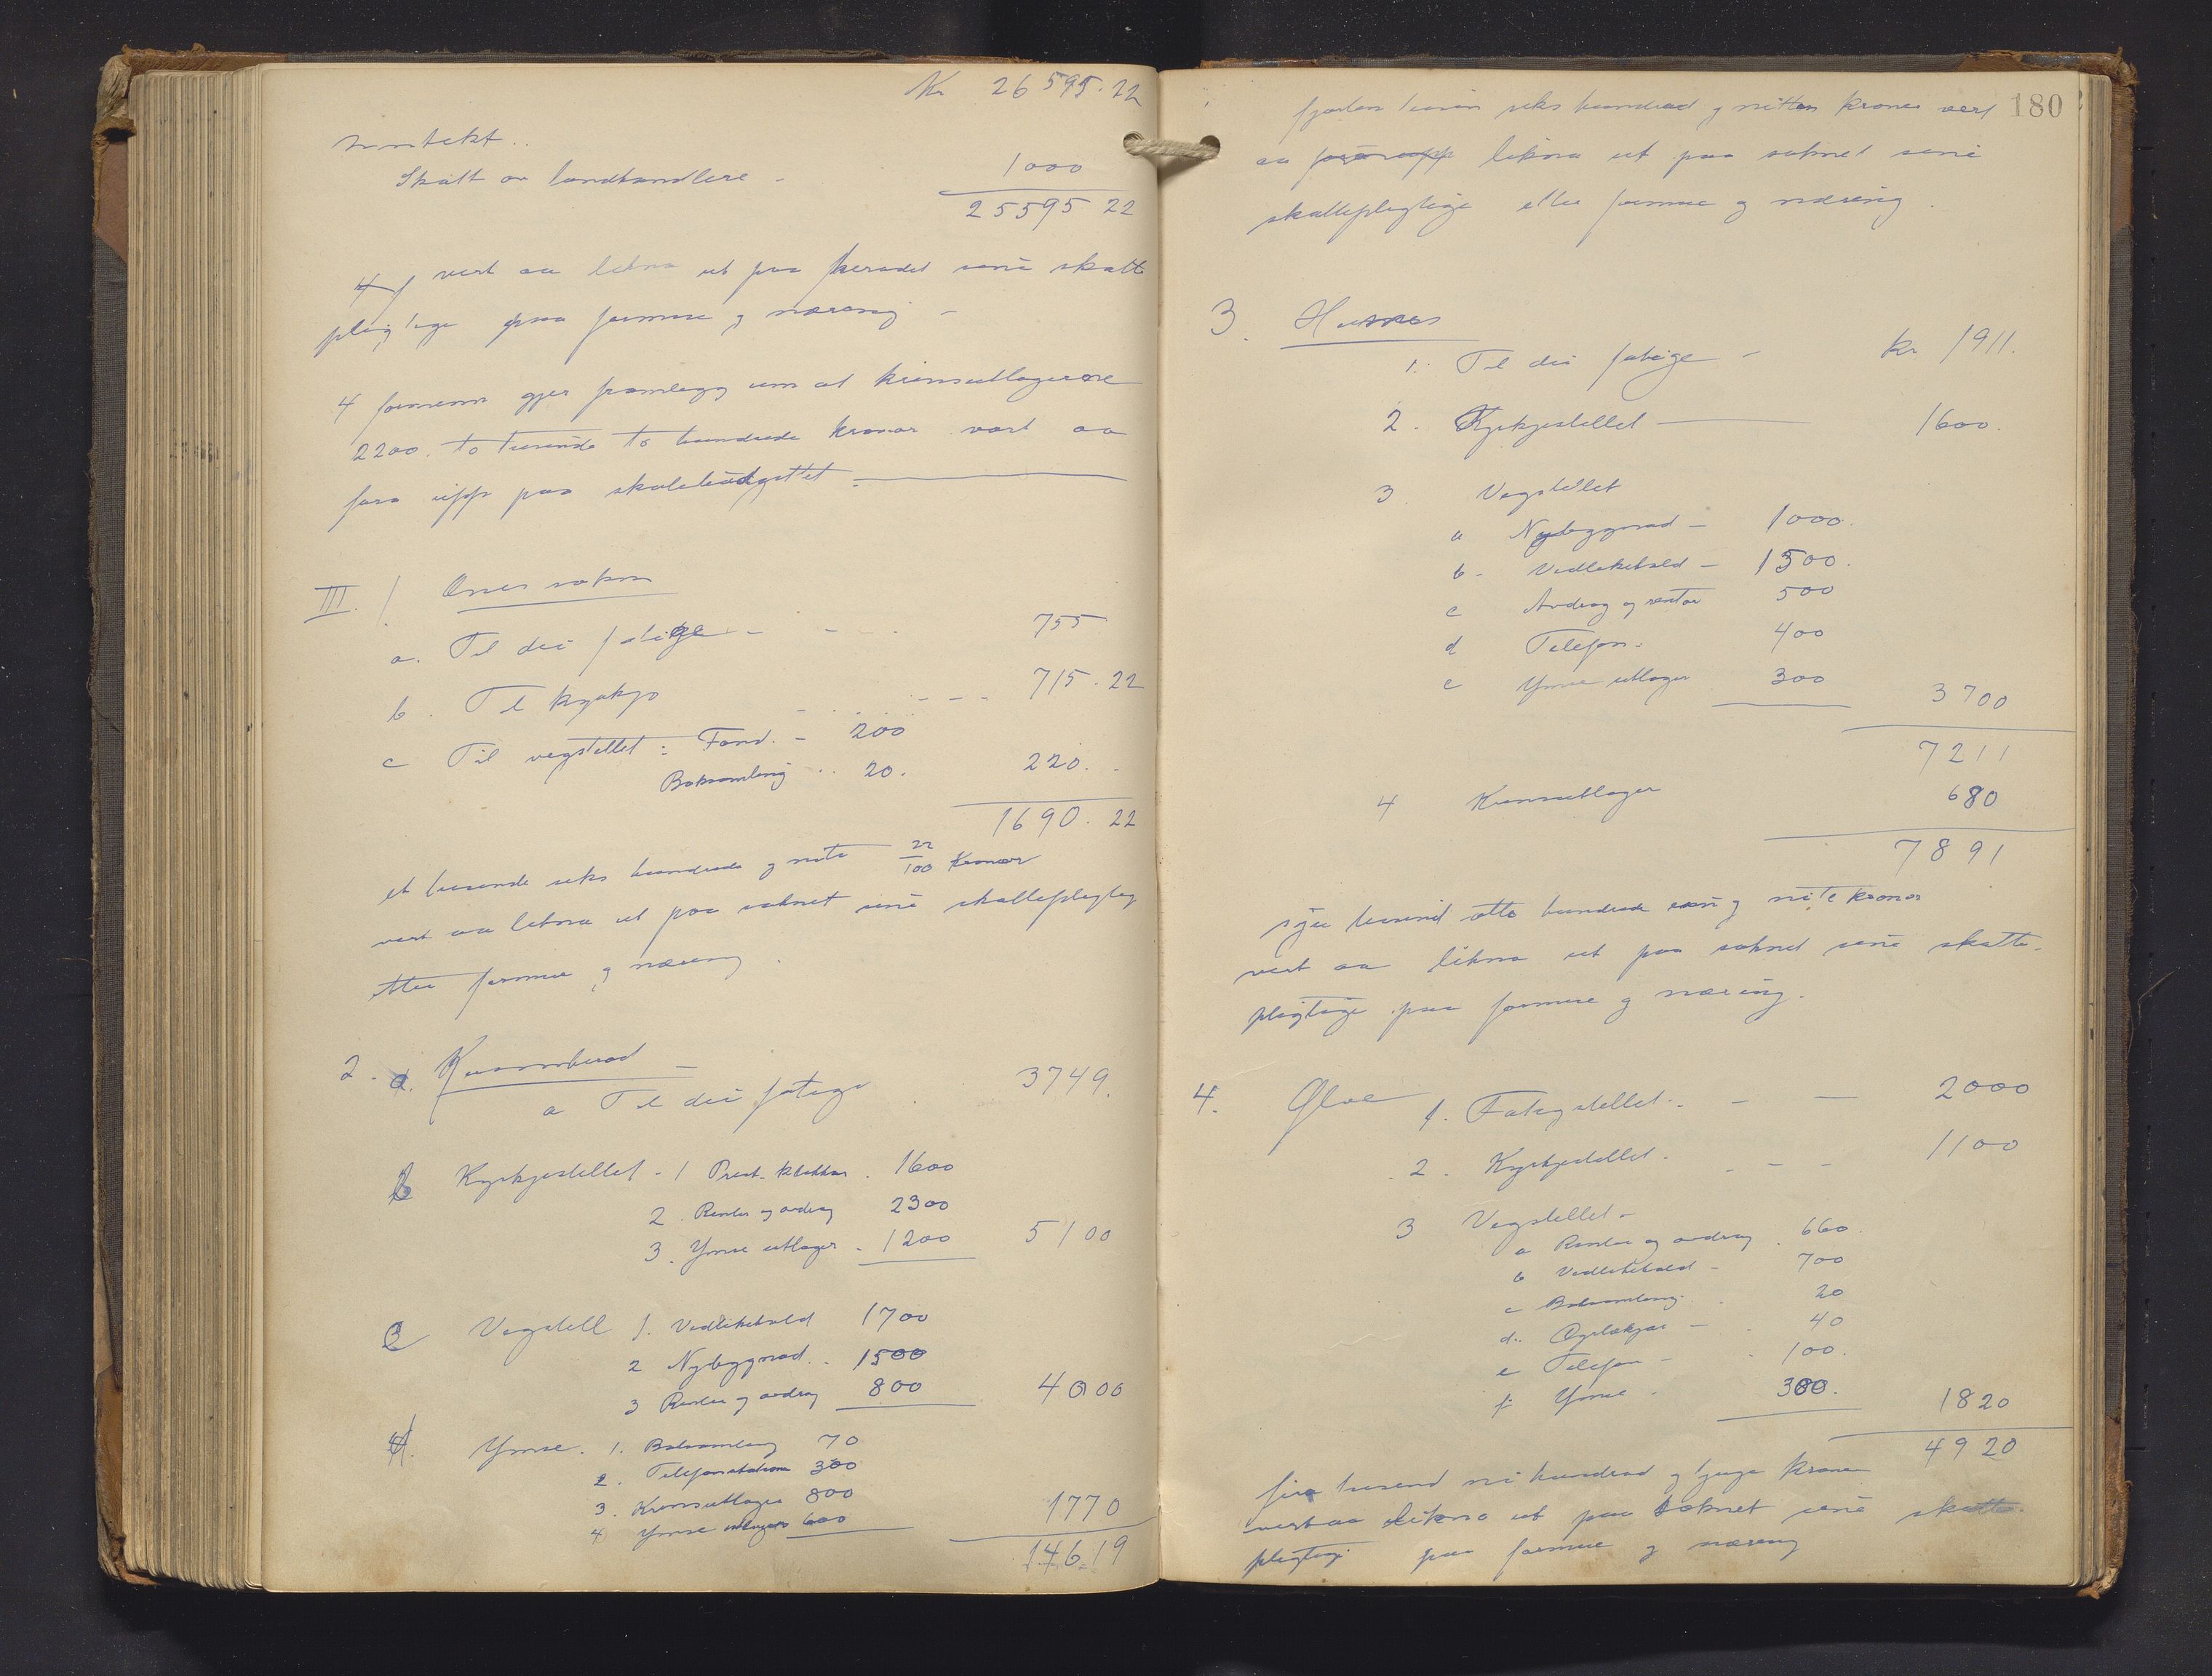 Kr 26595.22
Inntekt..
Skatt av landhandlere - 1000
25595 22
4/ vert aa likna ut paa heradet sine skatt
pligtige paa formue og næring -
4 formenn gjer framlegg um at krinsutlagerne
2200. to tusende to hundrade kronor vert aa
føra upp paa skulebudgettet.
III. 1 Ones sokn
a. Til dei fatige - - - 755
b. Til kyrkjo - - - 715.22
c Til vegstellet: Fond. - 200
Boksamling .. 20. 220. -
1690.22
et tusende seks hundrade og nitti 22/100 kronor
vert aa likna ut paa soknet sine skattepligtig
etter formue og næring.
2. a. Kvannherad -
a Til dei fatige . 3749.
b Kyrkjestellet - 1 Prest. klokkar . 1600
2. Renter og avdrag 2300
3. Ymse utlagor - 1200 5100
c Vegstell 1. Vedlikehald 1700
2 Nybyggnad . . 1500
3 Renter og avdrag 800 4000
4. Ymse. 1. Boksamling 70
2. Telefonstation 300
3. Krinsutlagor 800
4 Ymse utlagor 600 1770
14619
180
fjorten tusen seks hundrad og nitten kronor vert
aa likna ut paa soknet sine
skatteplegtige etter formue og næring.
3. Husnes
1. Til dei fatige - kr 1911.
2. Kyrkjestellet 1600.
3 Vegstellet
a Nybyggnad - 1000.
b - Vedlikehald - 1500.
c Avdrag og rentor 500
d Telefon. 400
e Ymse utlagor 300 3700
7211
4 Krinsutlagor 680
7891
sju tusend otto hundrade ein og niti kronor
vert aa likna ut paa soknet sine skatte-
plegtige paa formue og næring.
4. Ølve 1. Fatigstellet. - - 2000
2. Kyrkjestellet. - - - 1100
3 Vegstellet -
a Renter og avdrag . 660.
b Vedlikehald - 700
c Boksamling . 20
d. - . 40
e Telefon - . 100.
f. Ymse . 300. 1820
4920
fire tusend ni hundrad og tjuge kronor
vert aa likna ut paa soknet sine skatte-
plegtige paa formue og næring